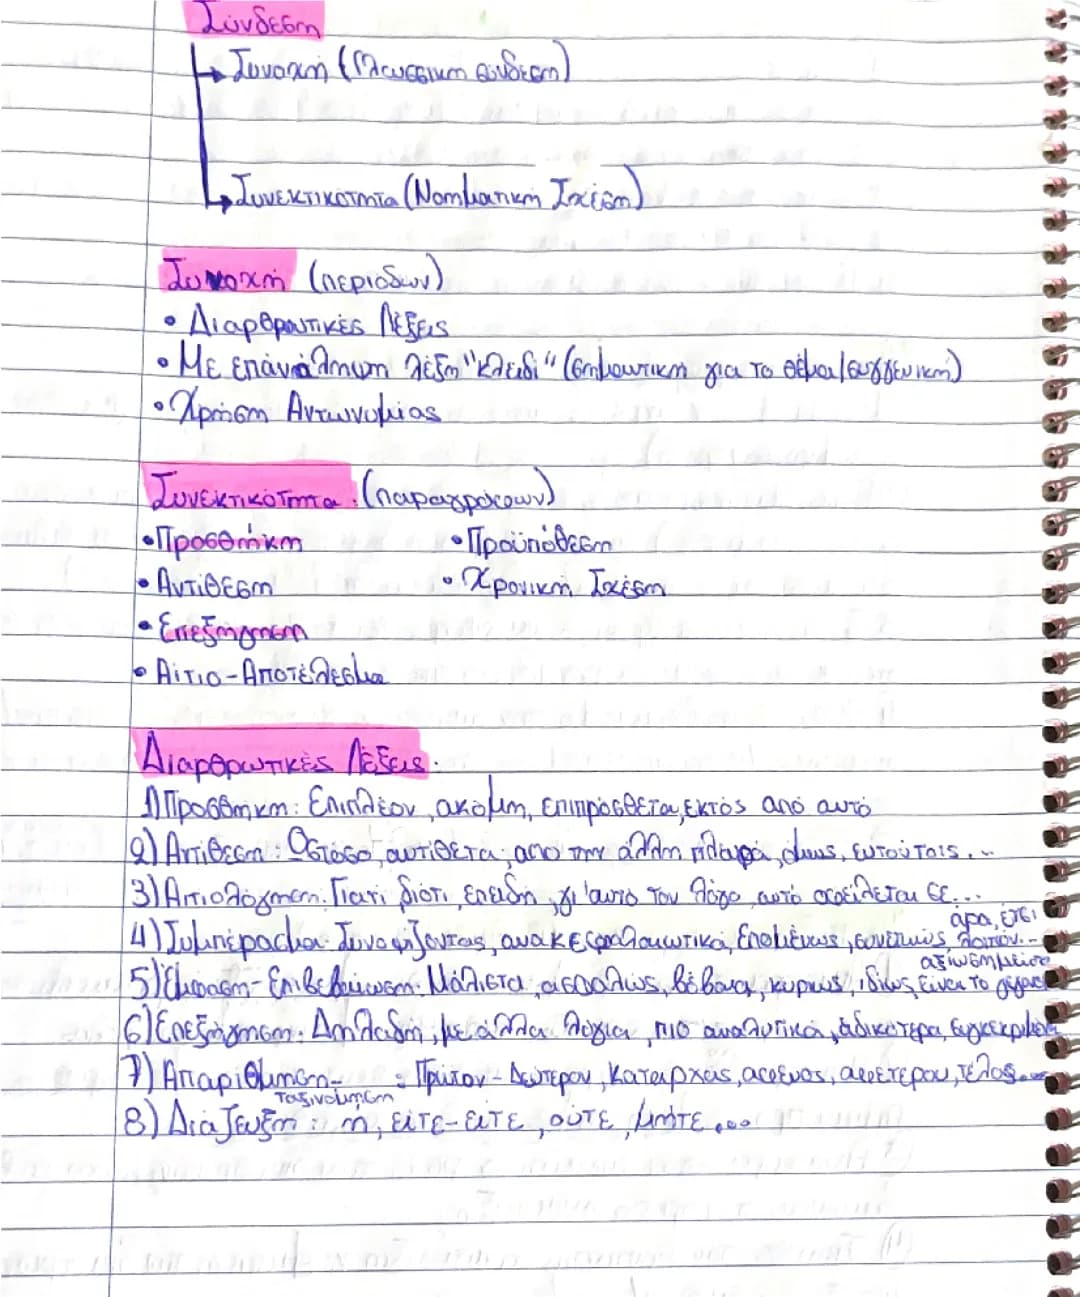 Σύνδεση
Συνοχή (Γλωσσική σύνδεση)
Συνεκτικότητα (Νοηματική Σχέση)
Συνοχή (περιόδων)
• Διαρθρωτικές Λέξεις
• Με επανάληψη λέξη "κλειδί" (σημαντική για το θέμα/συγγενική)
• Χρήση Αντωνυμίας
Συνεκτικότητα: (παραγράφων)
• Προσθήκη • Προϋπόθεση
• Αντίθεση • Χρονική Σχέση
• Επεξήγηση
• Αίτιο-Αποτέλεσμα
Διαρθρωτικές Λέξεις:
1) Προσθήκη: Επιπλέον, ακόμη, επιπρόσθετα, εκτός από αυτό
2) Αντίθεση: Ωστόσο, αντίθετα, από την άλλη πλευρά, όμως, εντούτοις...
3) Αιτιολόγηση: Γιατί, διότι, επειδή, γι'αυτό τον λόγο, αυτό οφείλεται σε...
άρα, έτσι
4) Συμπέρασμα: Συνοψίζοντας, ανακεφαλαιωτικά, Επομένως, συνεπώς, λοιπόν...
αξιοσημείωτο
5) Έμφαση-Επιβεβαίωση: Μάλιστα, ασφαλώς, βέβαια, κυρίως, ιδίως, είναι το
6) Επεξήγηση: Δηλαδή, με άλλα λόγια, πιο αναλυτικά, ειδικότερα, συγκεκριμένα
7) Απαρίθμηση- : Πρώτον-Δεύτερον, Καταρχάς, αφενός, αφετέρου, τέλος...
Ταξινόμηση
8) Διάζευξη: ή, είτε-είτε, ούτε, μήτε...